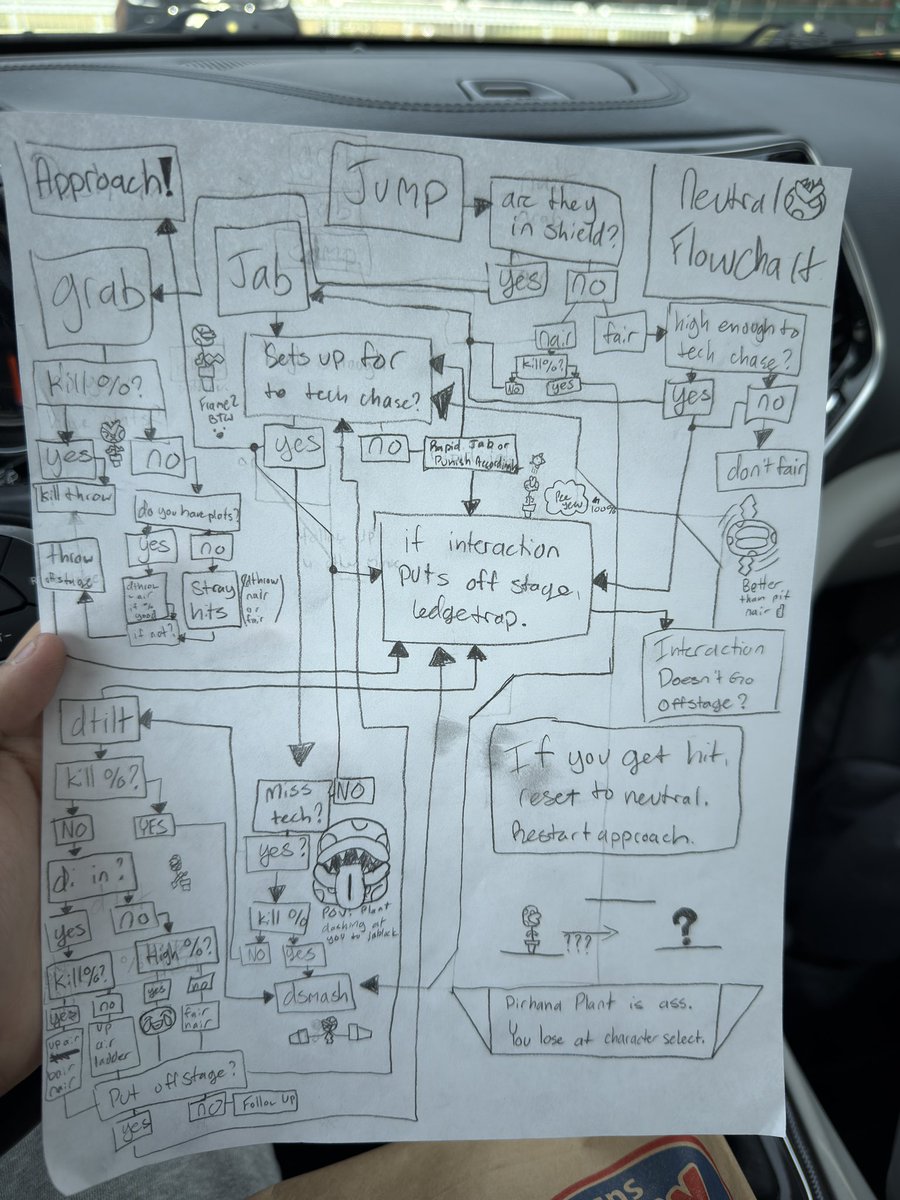 Approach!
Jump
are they
in shield?
Neutral
Flowchart
grab
Jab
yes
no
nair
fair
high enough to
tech chase?
kill%?
No
yes
yes
no
don't fair
Kill%?
yes
no
kill throw
Frame 2
BTW
Sets up for
to tech chase?
yes
no
Rapid Jab or
Punish Accordingly
Pee
yew
100%
do you have plats?
yes
no
throw
offstage
dthrow
air
if %
good
if not?
Stray
hits
(dthrow
nair
or
fair)
if interaction
puts off stage,
ledgetrap.
Better
than pit
nair
Interaction
Doesn't Go
offstage?
dtilt
Kill %?
NO
YES
di in?
yes
no
Kill%?
High %?
yes
no
yes
no
up air
bair
nair
up
air
ladder
fair
nair
Put off stage?
yes
no
Follow Up
Miss
tech?
NO
yes?
kill %
NO
yes
dsmash
POV: Plant
dashing at
you to jablock
If you get hit,
reset to neutral.
Restart approach.
???
?
Pirhana Plant is ass.
You lose at character select.